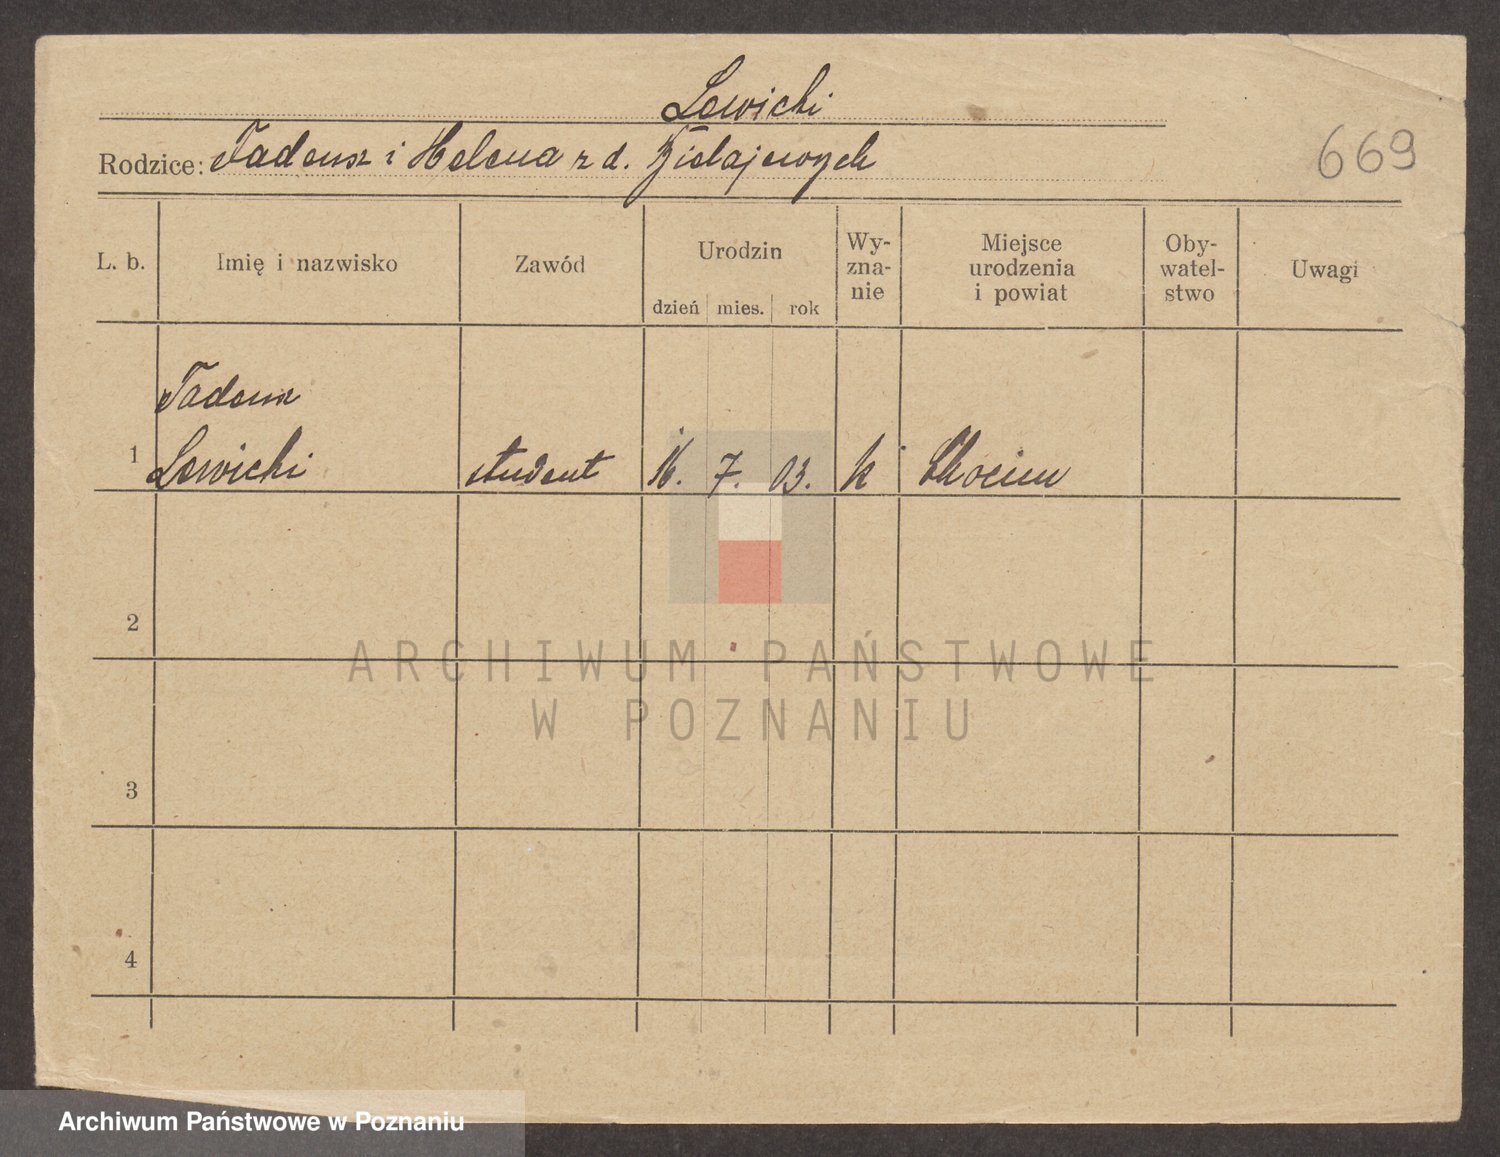 Lewicki
Rodzice: Tadeusz i Helena z d.
669
L. b. Imię i nazwisko Zawód Urodzin dzień mies. rok Wy-
zna-
nie Miejsce
urodzenia
i powiat Oby-
watel-
stwo Uwagi
Tadeusz
1 Lewicki student 16. 7. 03. k
2
3
4
ARCHIWUM PAŃSTWOWE
W POZNANIU
Archiwum Państwowe w Poznaniu